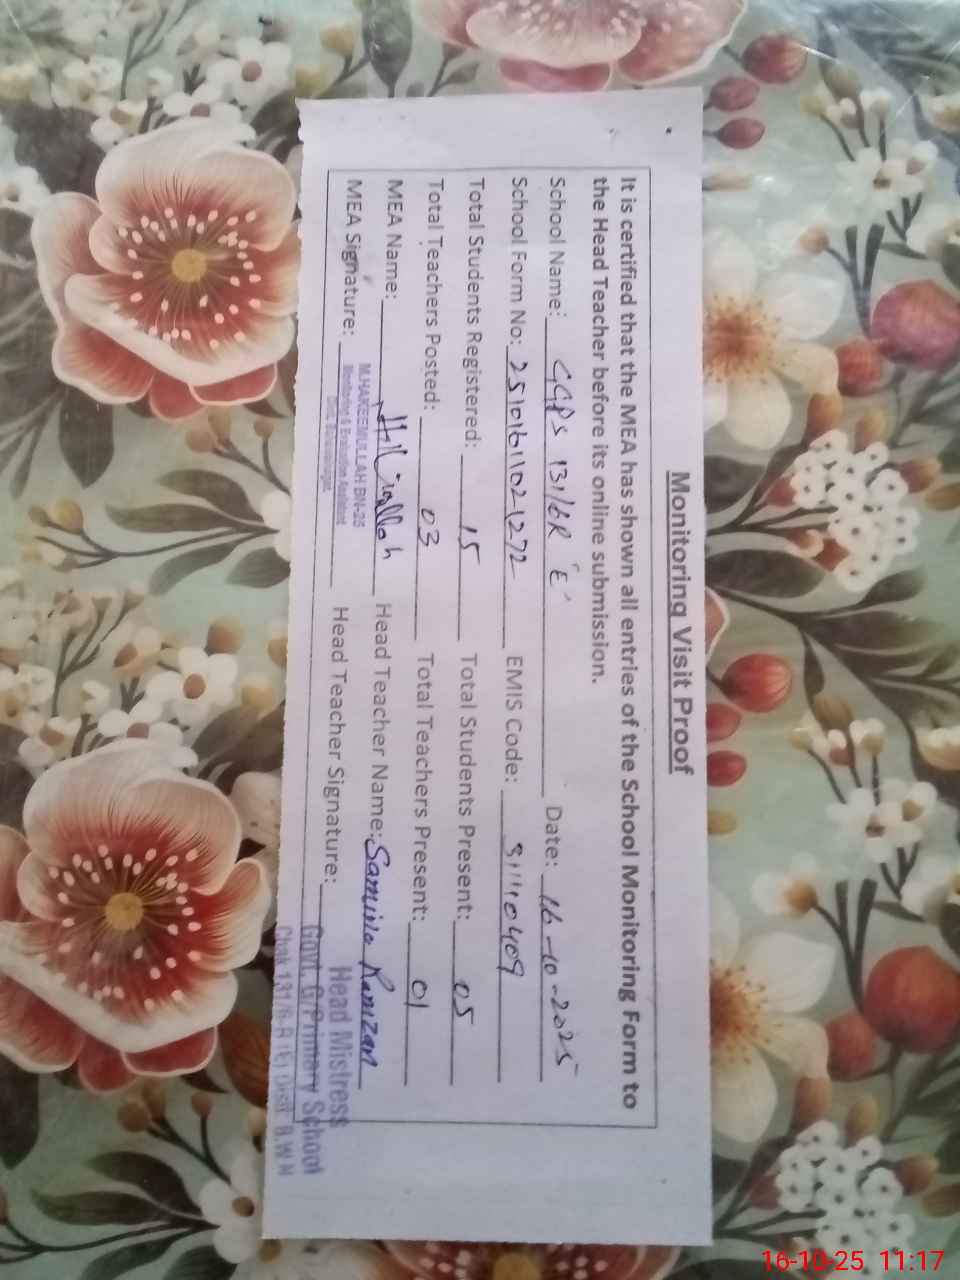 Monitoring Visit Proof
It is certified that the MEA has shown all entries of the School Monitoring Form to
the Head Teacher before its online submission.
School Name: GGPS 131/6R 'E' Date: 16-10-2025
School Form No: 2510161102-1272 EMIS Code: 31110409
Total Students Registered: 15 Total Students Present: 05
Total Teachers Posted: 03 Total Teachers Present: 01
MEA Name: Head Teacher Name: Samina Ramzan
MEA Signature: Head Teacher Signature:
M.HAKEEMULLAH BN-26
Monitoring & Evaluation Assistant
Distt. Bahawalnagar.
Head Mistress
Govt. G/Primary School
Chak 131/6-R (E) Distt B.W.N
16-10-25 11:17